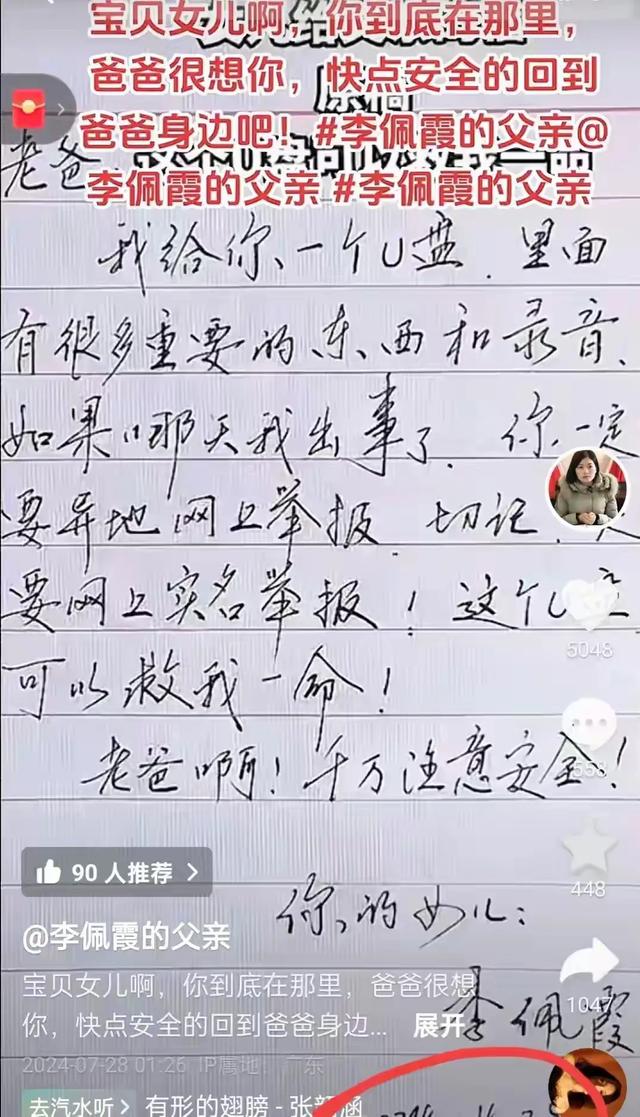 宝贝女儿啊，你到底在那里，
爸爸很想你，快点安全的回到
爸爸身边吧！#李佩霞的父亲@
李佩霞的父亲 #李佩霞的父亲
老爸
我给你一个U盘、里面
有很多重要的东西和录音、
如果哪天我出事了、你一定
要异地网上举报、切记、
要网上实名举报！这个U
可以救我一命！
老爸啊！千万注意安全！
5048
558
448
1047
90 人推荐
你的女儿：
李佩霞
@李佩霞的父亲
宝贝女儿啊，你到底在那里，爸爸很想
你，快点安全的回到爸爸身边... 展开
2024-07-28 01:26 IP属地：广东
去汽水听 有形的翅膀 - 张韶涵